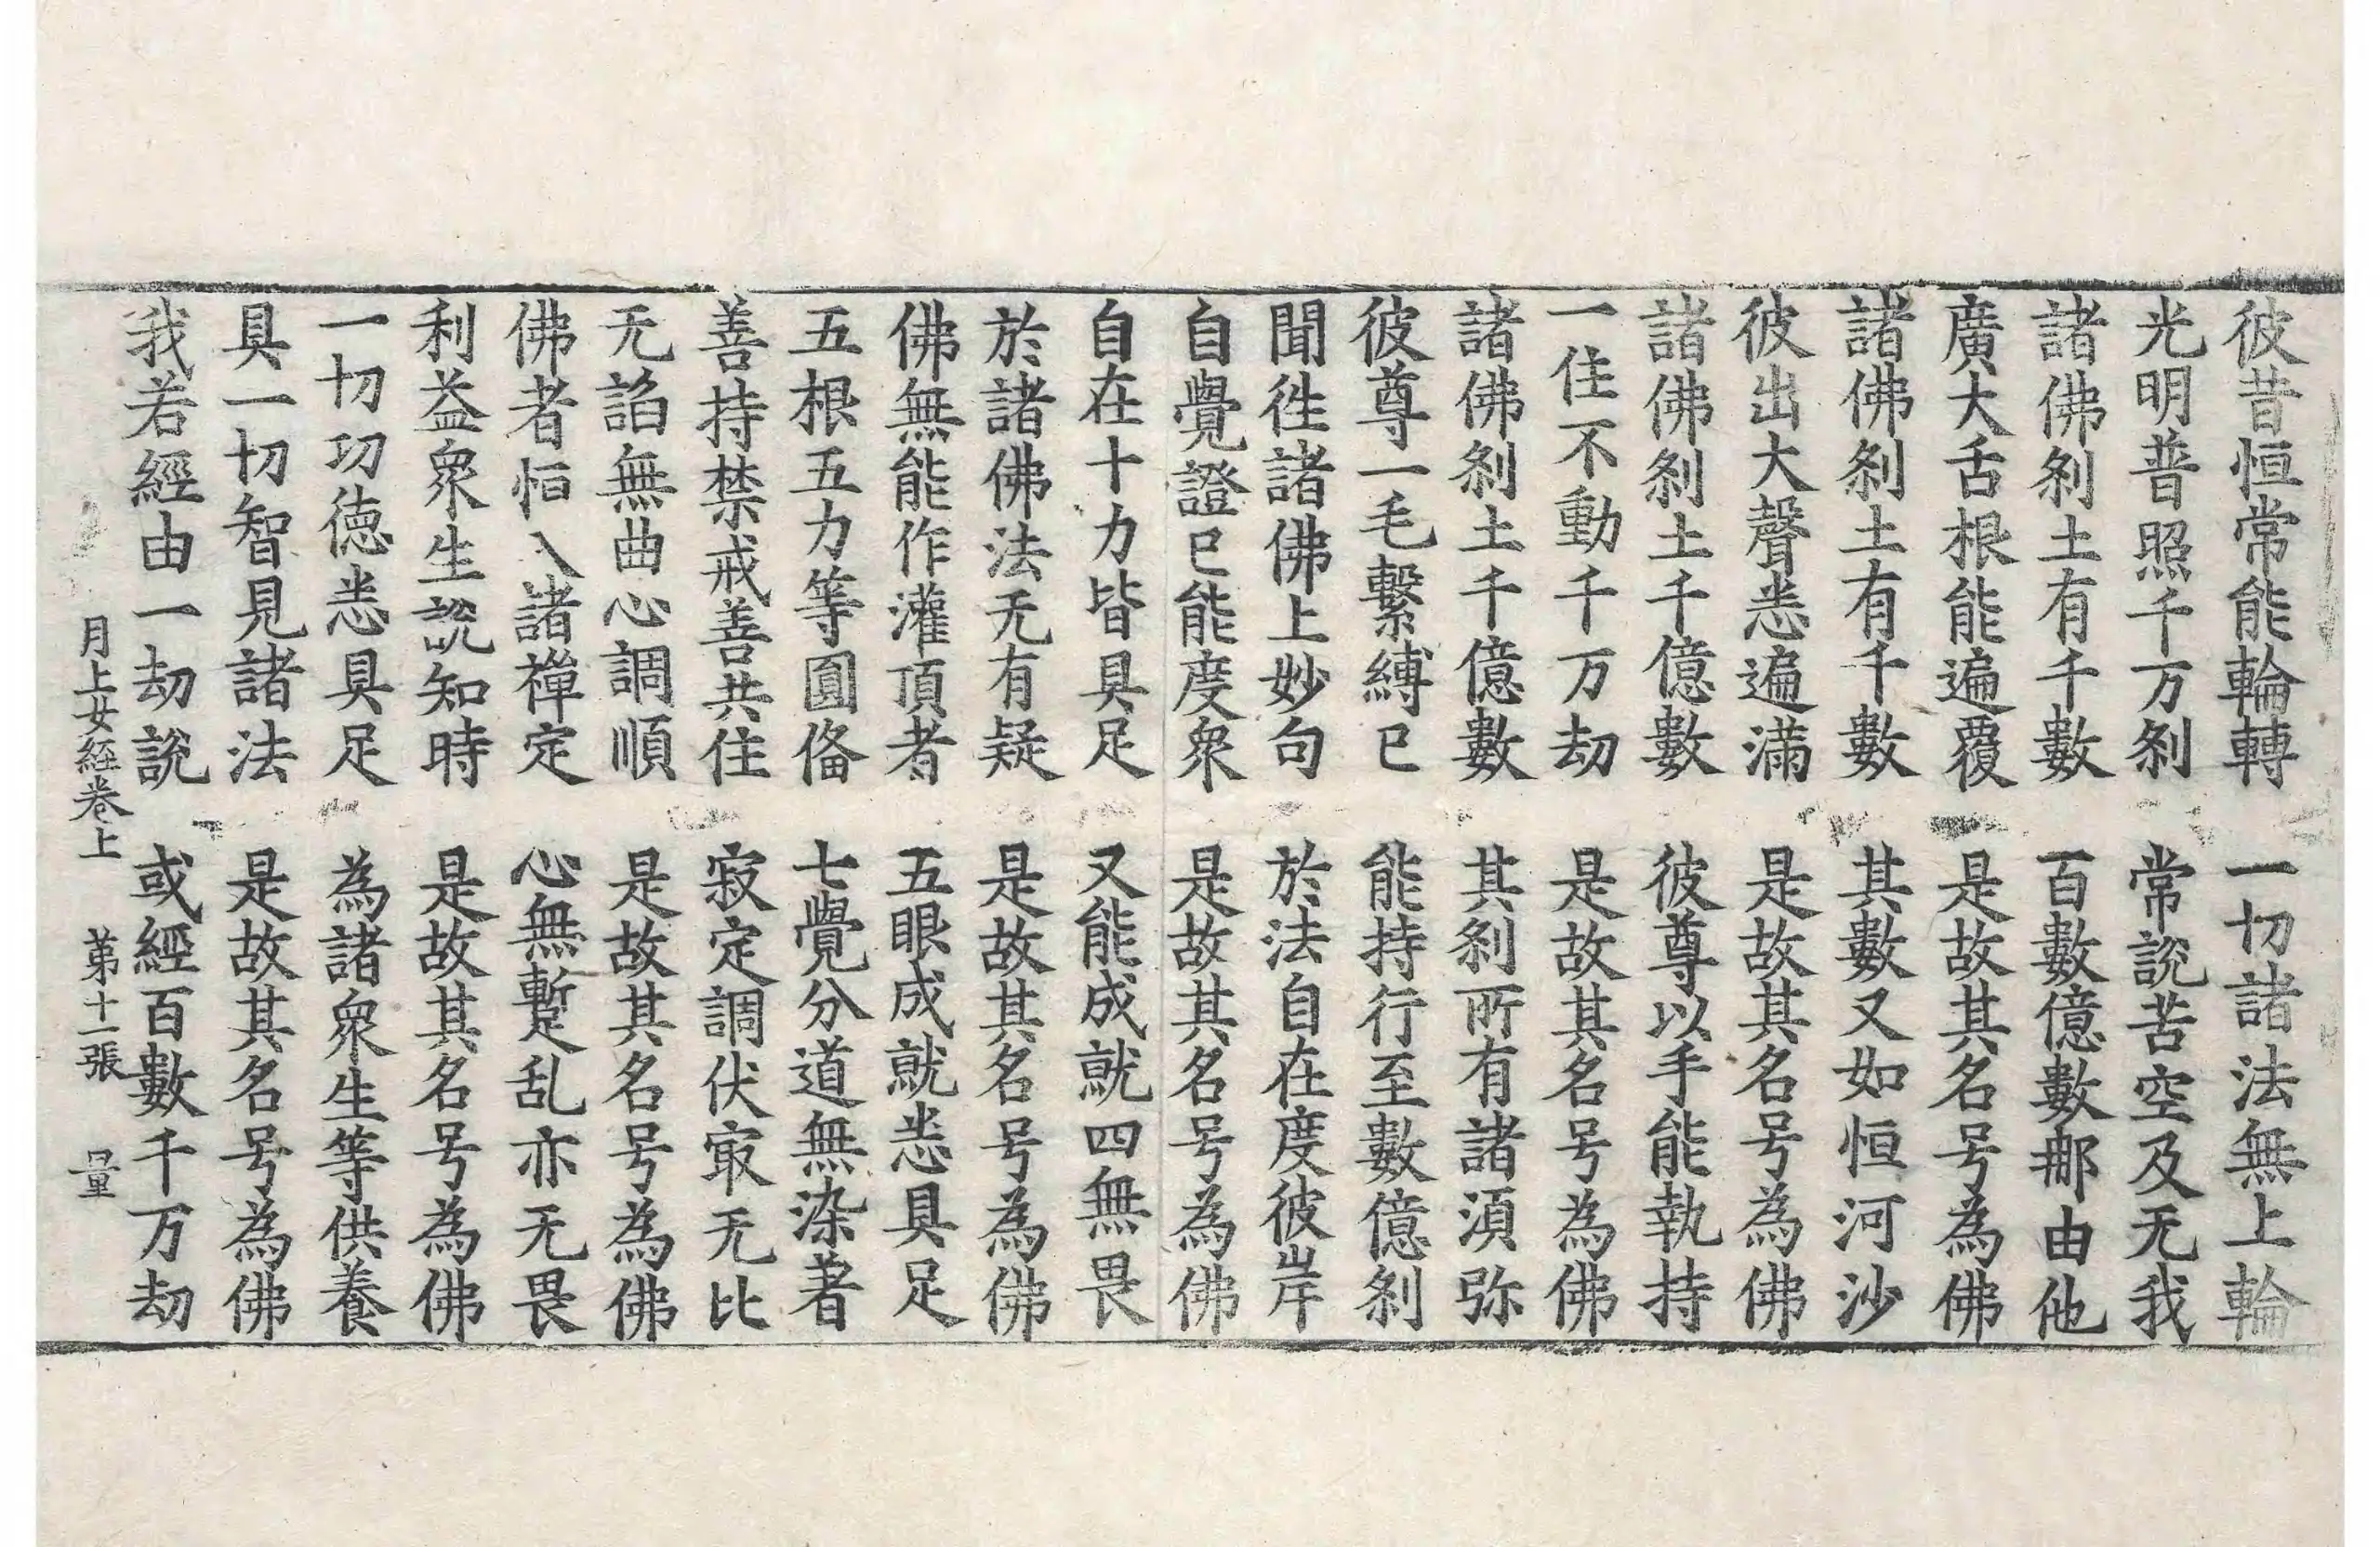 彼昔恒常能輪轉　一切諸法無上輪
光明普照千万刹　常說苦空及无我
諸佛刹土有千數　百數億數那由他
廣大舌根能遍覆　是故其名号為佛
諸佛刹土有千數　其數又如恒河沙
彼出大聲悉遍滿　是故其名号為佛
諸佛刹土千億數　彼尊以手能執持
一住不動千万劫　是故其名号為佛
諸佛刹土千億數　其刹所有諸湏弥
彼尊一毛繫縛已　能持行至數億刹
聞徃諸佛上妙句　於法自在度彼岸
自覺證已能度衆　是故其名号為佛
自在十力皆具足　又能成就四無畏
於諸佛法无有疑　是故其名号為佛
佛無能作灌頂者　五眼成就悉具足
五根五力等圓俻　七覺分道無染著
善持禁戒善共住　寂定調伏㝡无比
无謟無曲心調順　是故其名号為佛
佛者恒入諸禪定　心無蹔乱亦无畏
利益衆生說知時　是故其名号為佛
一切功德悉具足　為諸衆生等供養
具一切智見諸法　是故其名号為佛
我若經由一劫說　或經百數千万劫
月上女経卷上　苐十一張　量